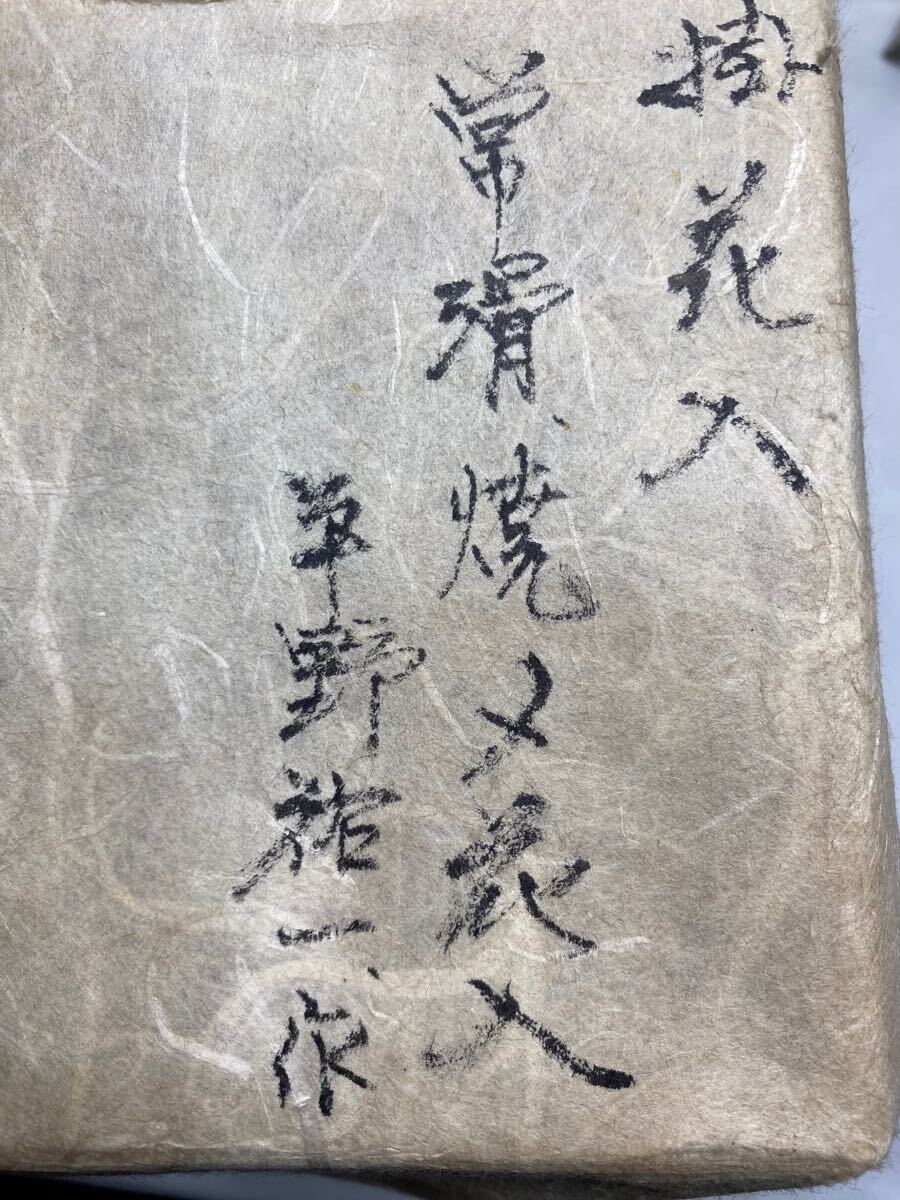 掛花入
常滑、焼〆花入
草野祐一、作